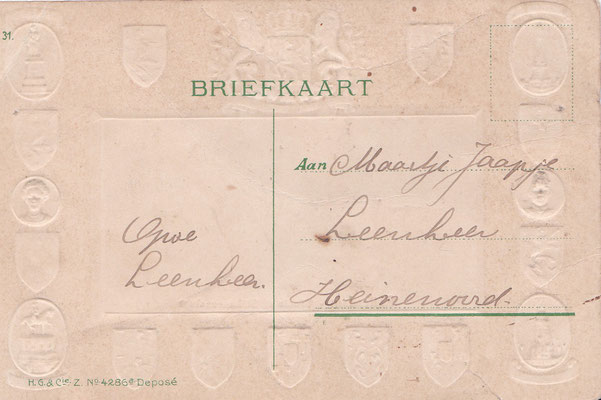 31.
BRIEFKAART
Aan Maartje Jaapje
Leenheer
Heinenoord.
Opoe
Leenheer.
H.G.&Cie. Z. No. 4286e Deposé